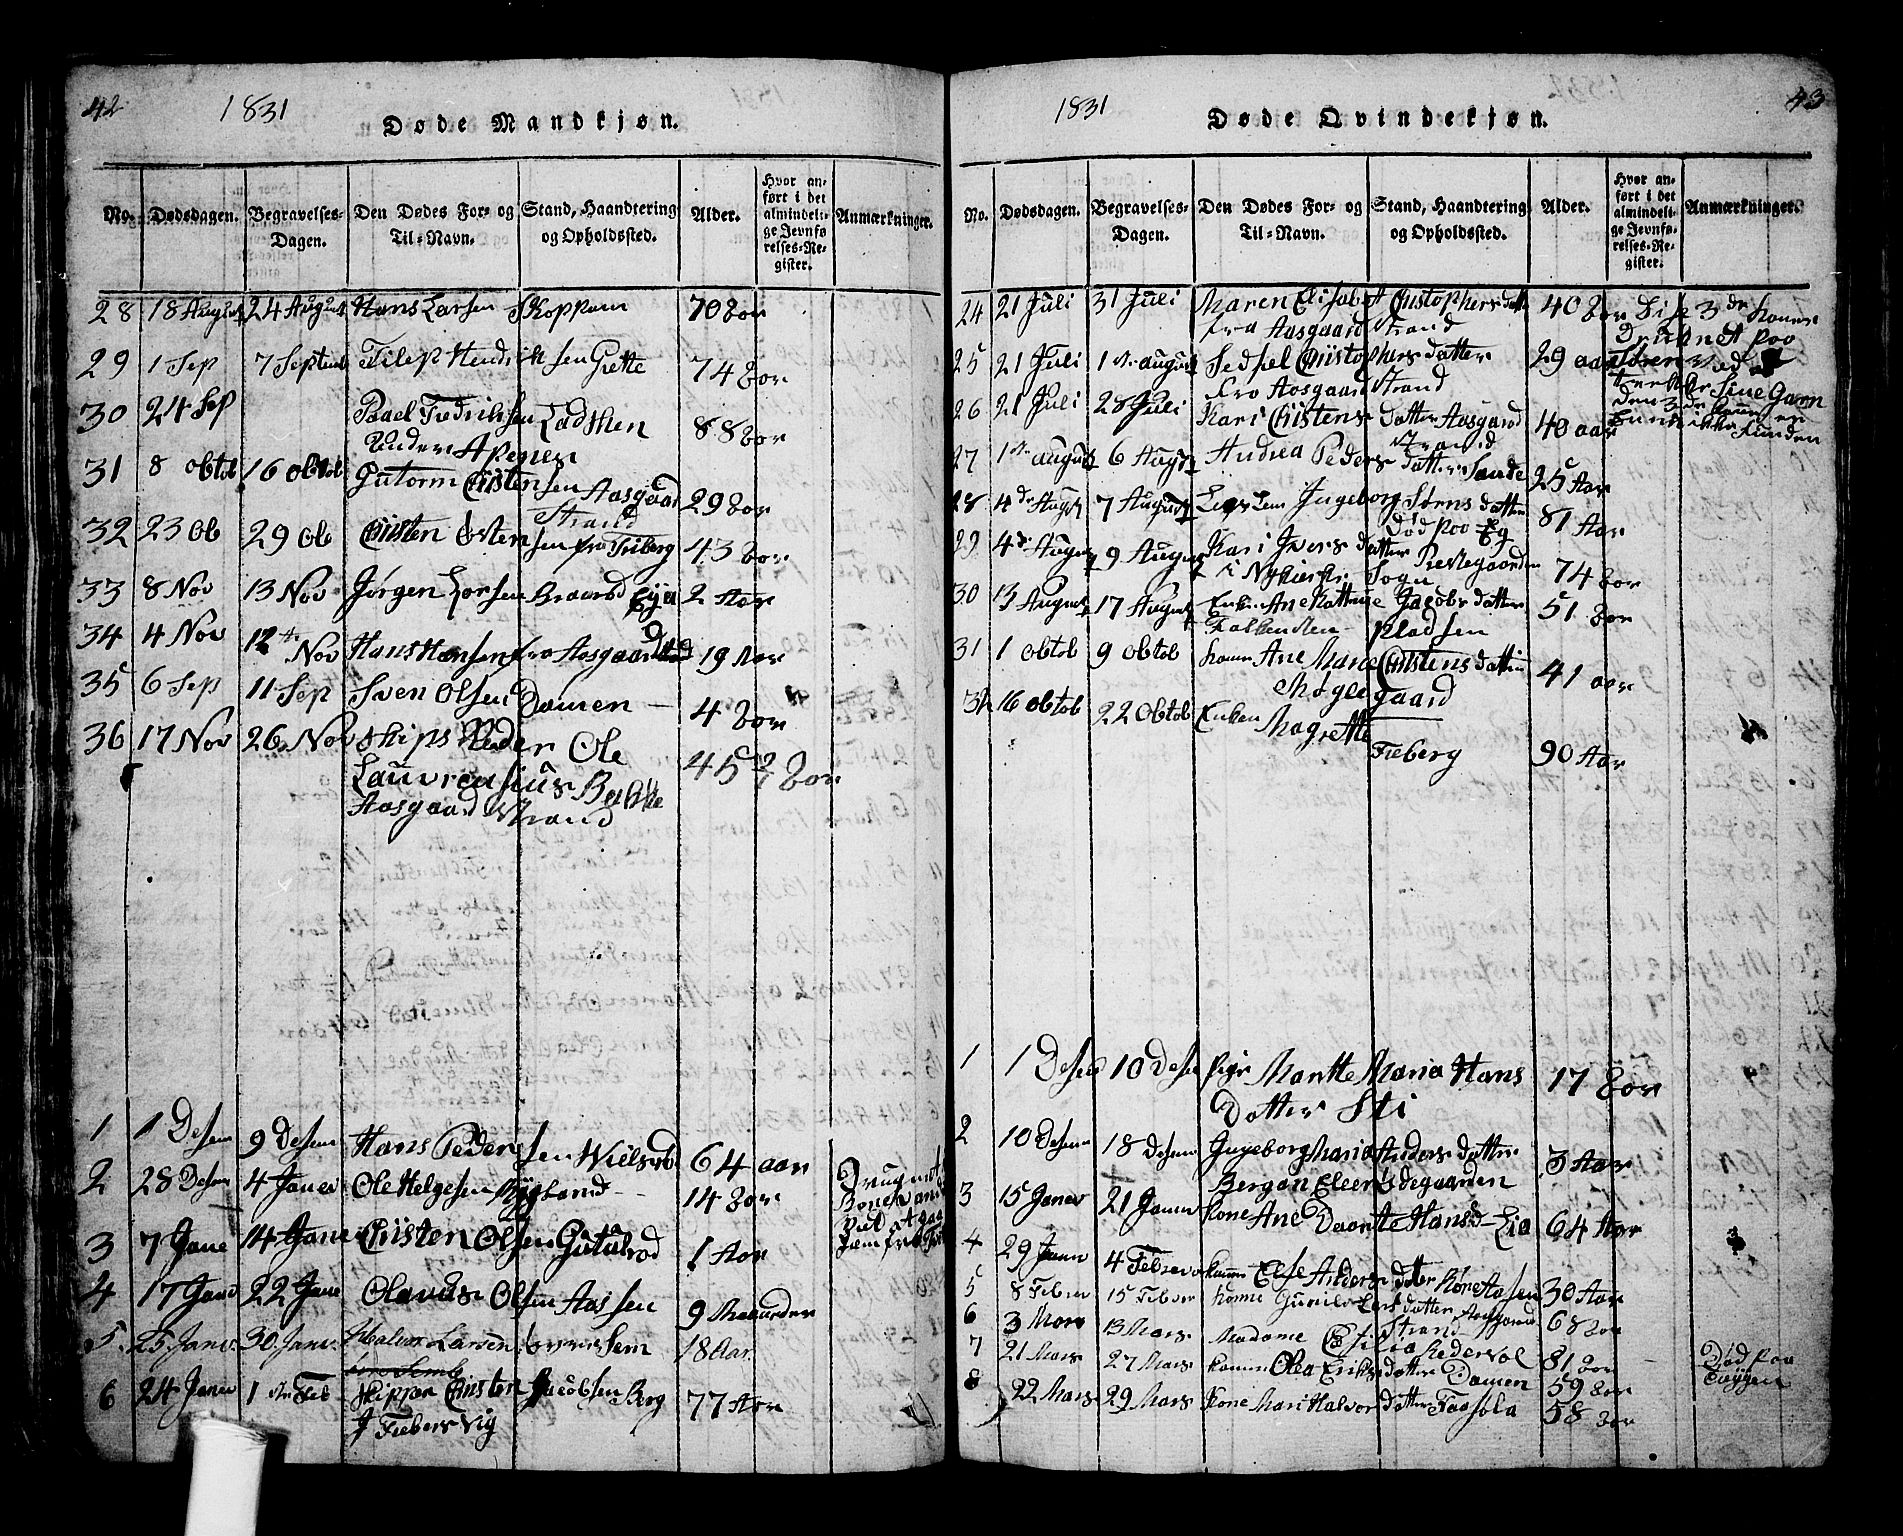 42
1831
Døde Mandkjøn.
No. Dødsdagen. Begravelses-Dagen. Den Dødes For- og Til-Navn. Stand, Haandtering og Opholdssted. Alder. Hvor anført i det almindelige Jevnførelses-Register. Anmærkninger.
28 18 August 24 August Hans Larsen Skoppom 70 Aar
29 1 Sep 7 Septemb Filep Hendriksen Grette 74 Aar
30 24 Sep Paael Fredriksen 88 Aar
31 8 obtob 16 obtob Gutorm Christensen Aasgaard
Strand 29 Aar
32 23 Ob 29 Ob Christen Ostensen fra Fiberg 43 Aar
33 8 Nov 13 Nov Jørgen Lorsen Braarød Eya 2 Aar
34 4 Nov 12te Nov Hans Hansen fra Aasgaardstrand 19 Aar
35 6 Sep 11 Sep Sven Olsen Domen 4 Aar
36 17 Nov 26 Nov Skips Reder Ole
Lauvreasius Bakke 45 Aar
Aasgaard Strand
1 1 Desem 9 Desem Hans Pedersen 64 aar
2 28 Desem 4 Janev Ole Helgesen Rygland 14 Aar
3 7 Jane 14 Jane Christen Olsen Gutulsrød 1 Aar
4 17 Janv 22 Jane Olavus Olsen Aassen 9 Maaneder
5. 25. Janv. 30. Janv. Halvor Larsen Sem 18 Aar.
6 24 Janev 1ste Feb Skipper Christen Jacobsen Berg 77 Aar
I Fiebersvig
43
1831
Døde Qvindekjøn.
No. Dødsdagen. Begravelses-Dagen. Den Dødes For- og Til-Navn. Stand, Haandtering og Opholdssted. Alder. Hvor anført i det almindelige Jevnførelses-Register. Anmærkninger.
24 21 Juli 31 Juli Maren Elisabet Cristophersdatter 40 Aar Disse 3de koner
fra Aasgaard Strand Druknet paa
25 21 Juli 1ste august Sedsel Christophersdatter 29 aar
fra Aasgaard Strand
26 21 Juli 28 Juli Kari Christens datter Aasgaard 40 aar
Strand
27 1ste august 6 August Andrea Peders datter Sande 25 Aar
28 4de August 7 August Ingeborg Sørns datter 81 Aar
Død paa Eg
29 4de August 9 August Kari Ivers datter Prestegaarden 74 Aar
i Nykierke Sogn
30 13 August 17 August Enken Ane Katrine Jacobsdatter 51 Aar
Falkensten Pladsen
31 1 obtob 9 obtob konen Ane Marie Christens datter 41 aar
Møgergaard
32 16 obtob 22 Obtob Enken Magrette
Fieberg 90 Aar
1 1 Desem 10 Desem Pige Marthe Maria Hans 17 Aar
Datter Sti
2 10 Desem 18 Desem Ingeborg Maria Anders datter 3 Aar
Bergan Eleersdegaarden
3 15 Janev 21 Janev kone Ane Daarte Hansd Lia 64 Aar
4 29 Janv 4 Febrev konen Else Anders dater 30 Aar
5 8 Febrev 15 Febrev konne Gunilo Lars datter Aasgaard 68 Aar
Strand
6 3 Mars 13 Mars Madame Cesilia Redersvol 81 Aar
7 21 Mars 27 Mars konnen Olea Eriks datter Domen 59 Aar
8 22 Mars 29 Mars kone Mari Halvors datter 58 Aar
Død paa